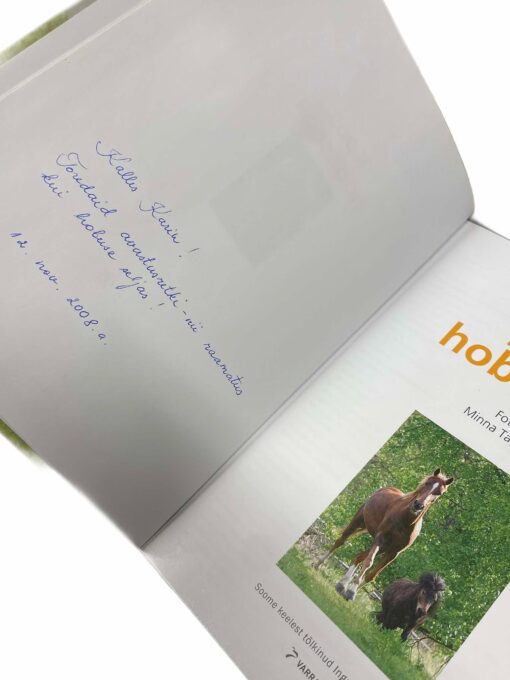 Kallis Karin!
Toredaid avastusretki - nii raamatus
kui hobuse seljas!
12. nov. 2008.a.
hob
Fot
Minna Ta
Soome keelest tõlkinud Ing
VARR